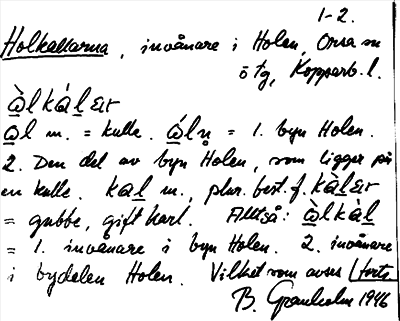 1-2.
Holkallarna, invånare i Holen, Orsa sn
ö tg, Kopparb. l.
ὰlkálεr
ål m. = kulle. ǻln = 1. byn Holen.
2. Den del av byn Holen, som ligger på
en kulle. kal m., plur. best. f. kàlεr
= gubbe, gift karl. Alltså: ὰlkàl
= 1. invånare i byn Holen. 2. invånare
i bydelen Holen. Vilket som avses (forts
B. Granholm 1946